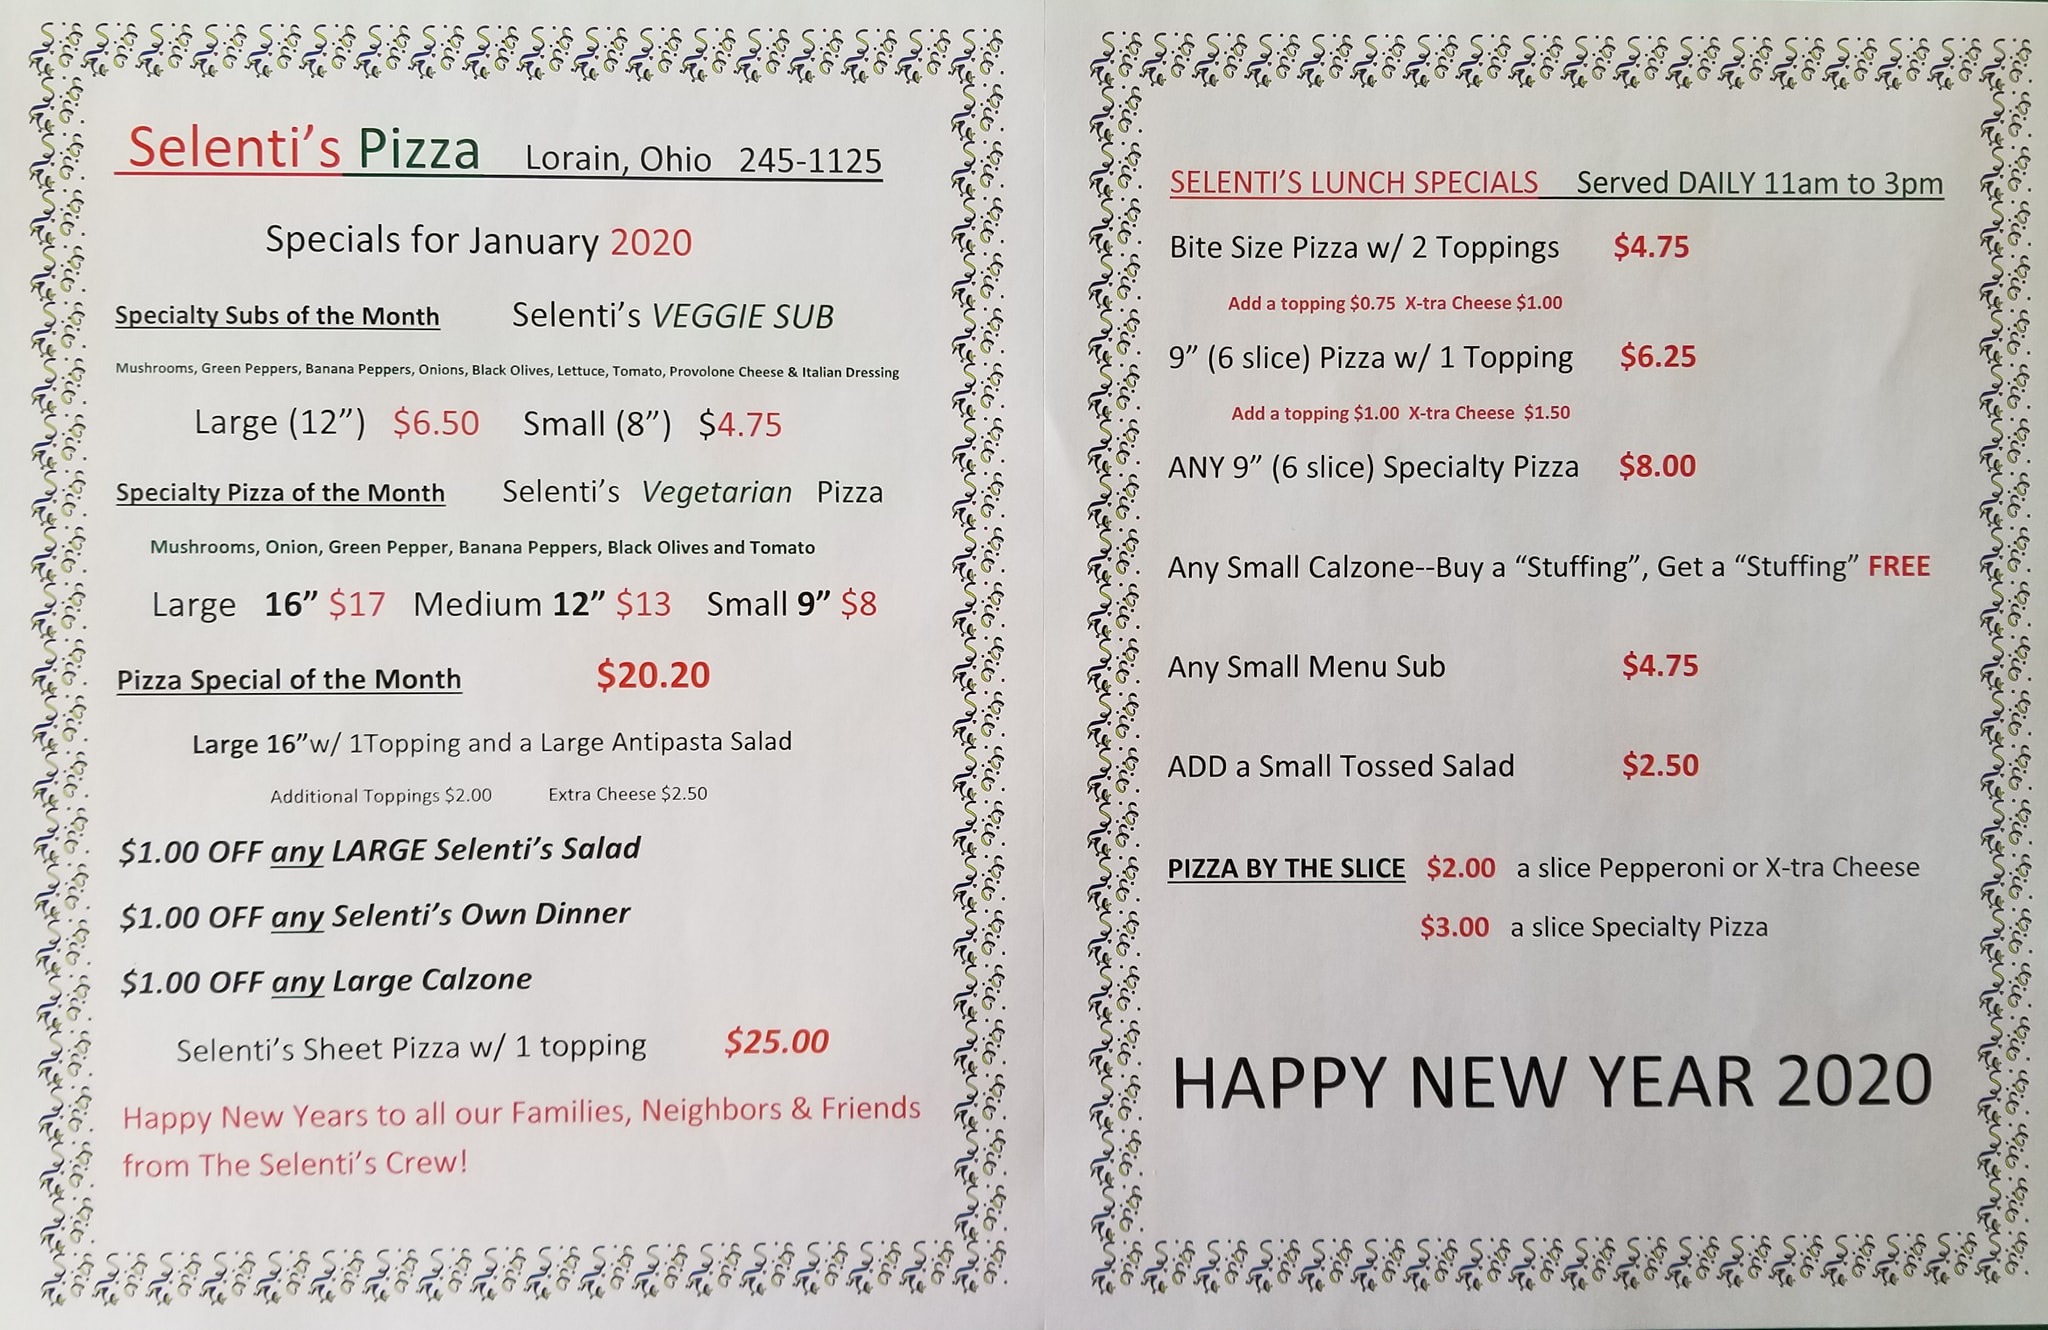 Selenti's Pizza Lorain, Ohio 245-1125
Specials for January 2020
Specialty Subs of the Month Selenti's VEGGIE SUB
Mushrooms, Green Peppers, Banana Peppers, Onions, Black Olives, Lettuce, Tomato, Provolone Cheese & Italian Dressing
Large (12”) $6.50 Small (8”) $4.75
Specialty Pizza of the Month Selenti's Vegetarian Pizza
Mushrooms, Onion, Green Pepper, Banana Peppers, Black Olives and Tomato
Large 16” $17 Medium 12” $13 Small 9” $8
Pizza Special of the Month $20.20
Large 16”w/ 1Topping and a Large Antipasta Salad
Additional Toppings $2.00 Extra Cheese $2.50
$1.00 OFF any LARGE Selenti's Salad
$1.00 OFF any Selenti's Own Dinner
$1.00 OFF any Large Calzone
Selenti's Sheet Pizza w/ 1 topping $25.00
Happy New Years to all our Families, Neighbors & Friends
from The Selenti's Crew!
SELENTI'S LUNCH SPECIALS Served DAILY 11am to 3pm
Bite Size Pizza w/ 2 Toppings $4.75
Add a topping $0.75 X-tra Cheese $1.00
9” (6 slice) Pizza w/ 1 Topping $6.25
Add a topping $1.00 X-tra Cheese $1.50
ANY 9” (6 slice) Specialty Pizza $8.00
Any Small Calzone--Buy a “Stuffing”, Get a “Stuffing” FREE
Any Small Menu Sub $4.75
ADD a Small Tossed Salad $2.50
PIZZA BY THE SLICE $2.00 a slice Pepperoni or X-tra Cheese
$3.00 a slice Specialty Pizza
HAPPY NEW YEAR 2020